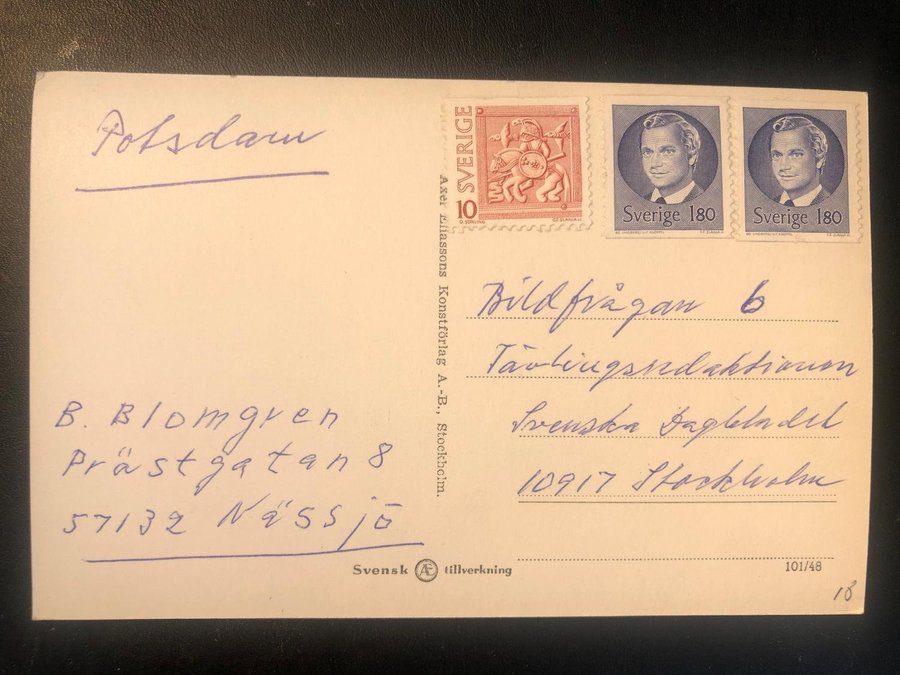 Potsdam
SVERIGE
10
Sverige 180
Sverige 180
Axel Eliassons Konstförlag A.-B., Stockholm.
Bildfrågan 6
Tävlingsredaktionen
Svenska Dagbladet
10917 Stockholm
B. Blomgren
Prästgatan 8
57132 Nässjö
Svensk Æ tillverkning
101/48
18